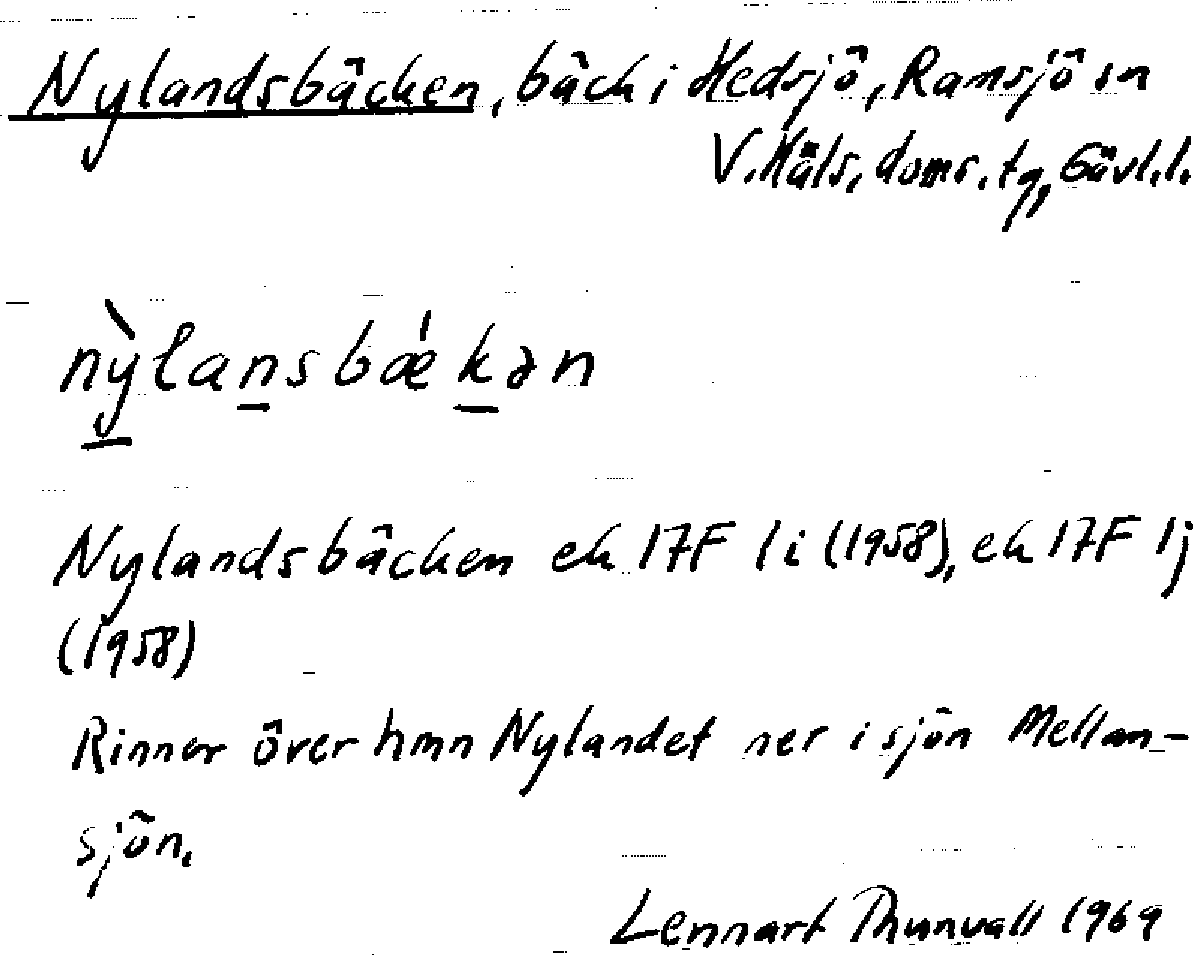 Nylandsbäcken, bäck i Hedsjö, Ramsjö sn
V. Häls. doms. tg, Gävl.l.
nỳ̠łan̠sbǽk̠ən
Nylandsbäcken ek 17F 1i (1958), ek 17F 1j
(1958)
Rinner över hmn Nylandet ner i sjön Mellan-
sjön.
Lennart Thunvall 1969